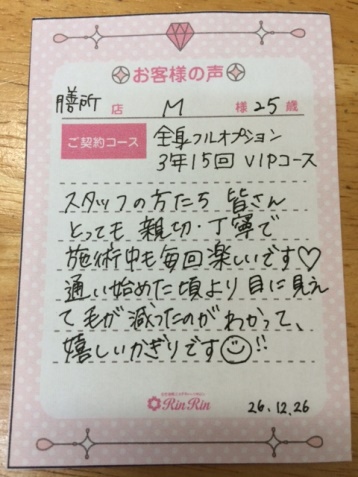 お客様の声
膳所 店 M 様 25 歳
ご契約コース 全身フルオプション
3年15回 VIPコース
スタッフの方たち 皆さん
とっても 親切・丁寧で
施術中も毎回楽しいです♡
通い始めた頃より 目に見え
て毛が減ったのがわかって、
嬉しいかぎりです☺!!
RinRin
26.12.26